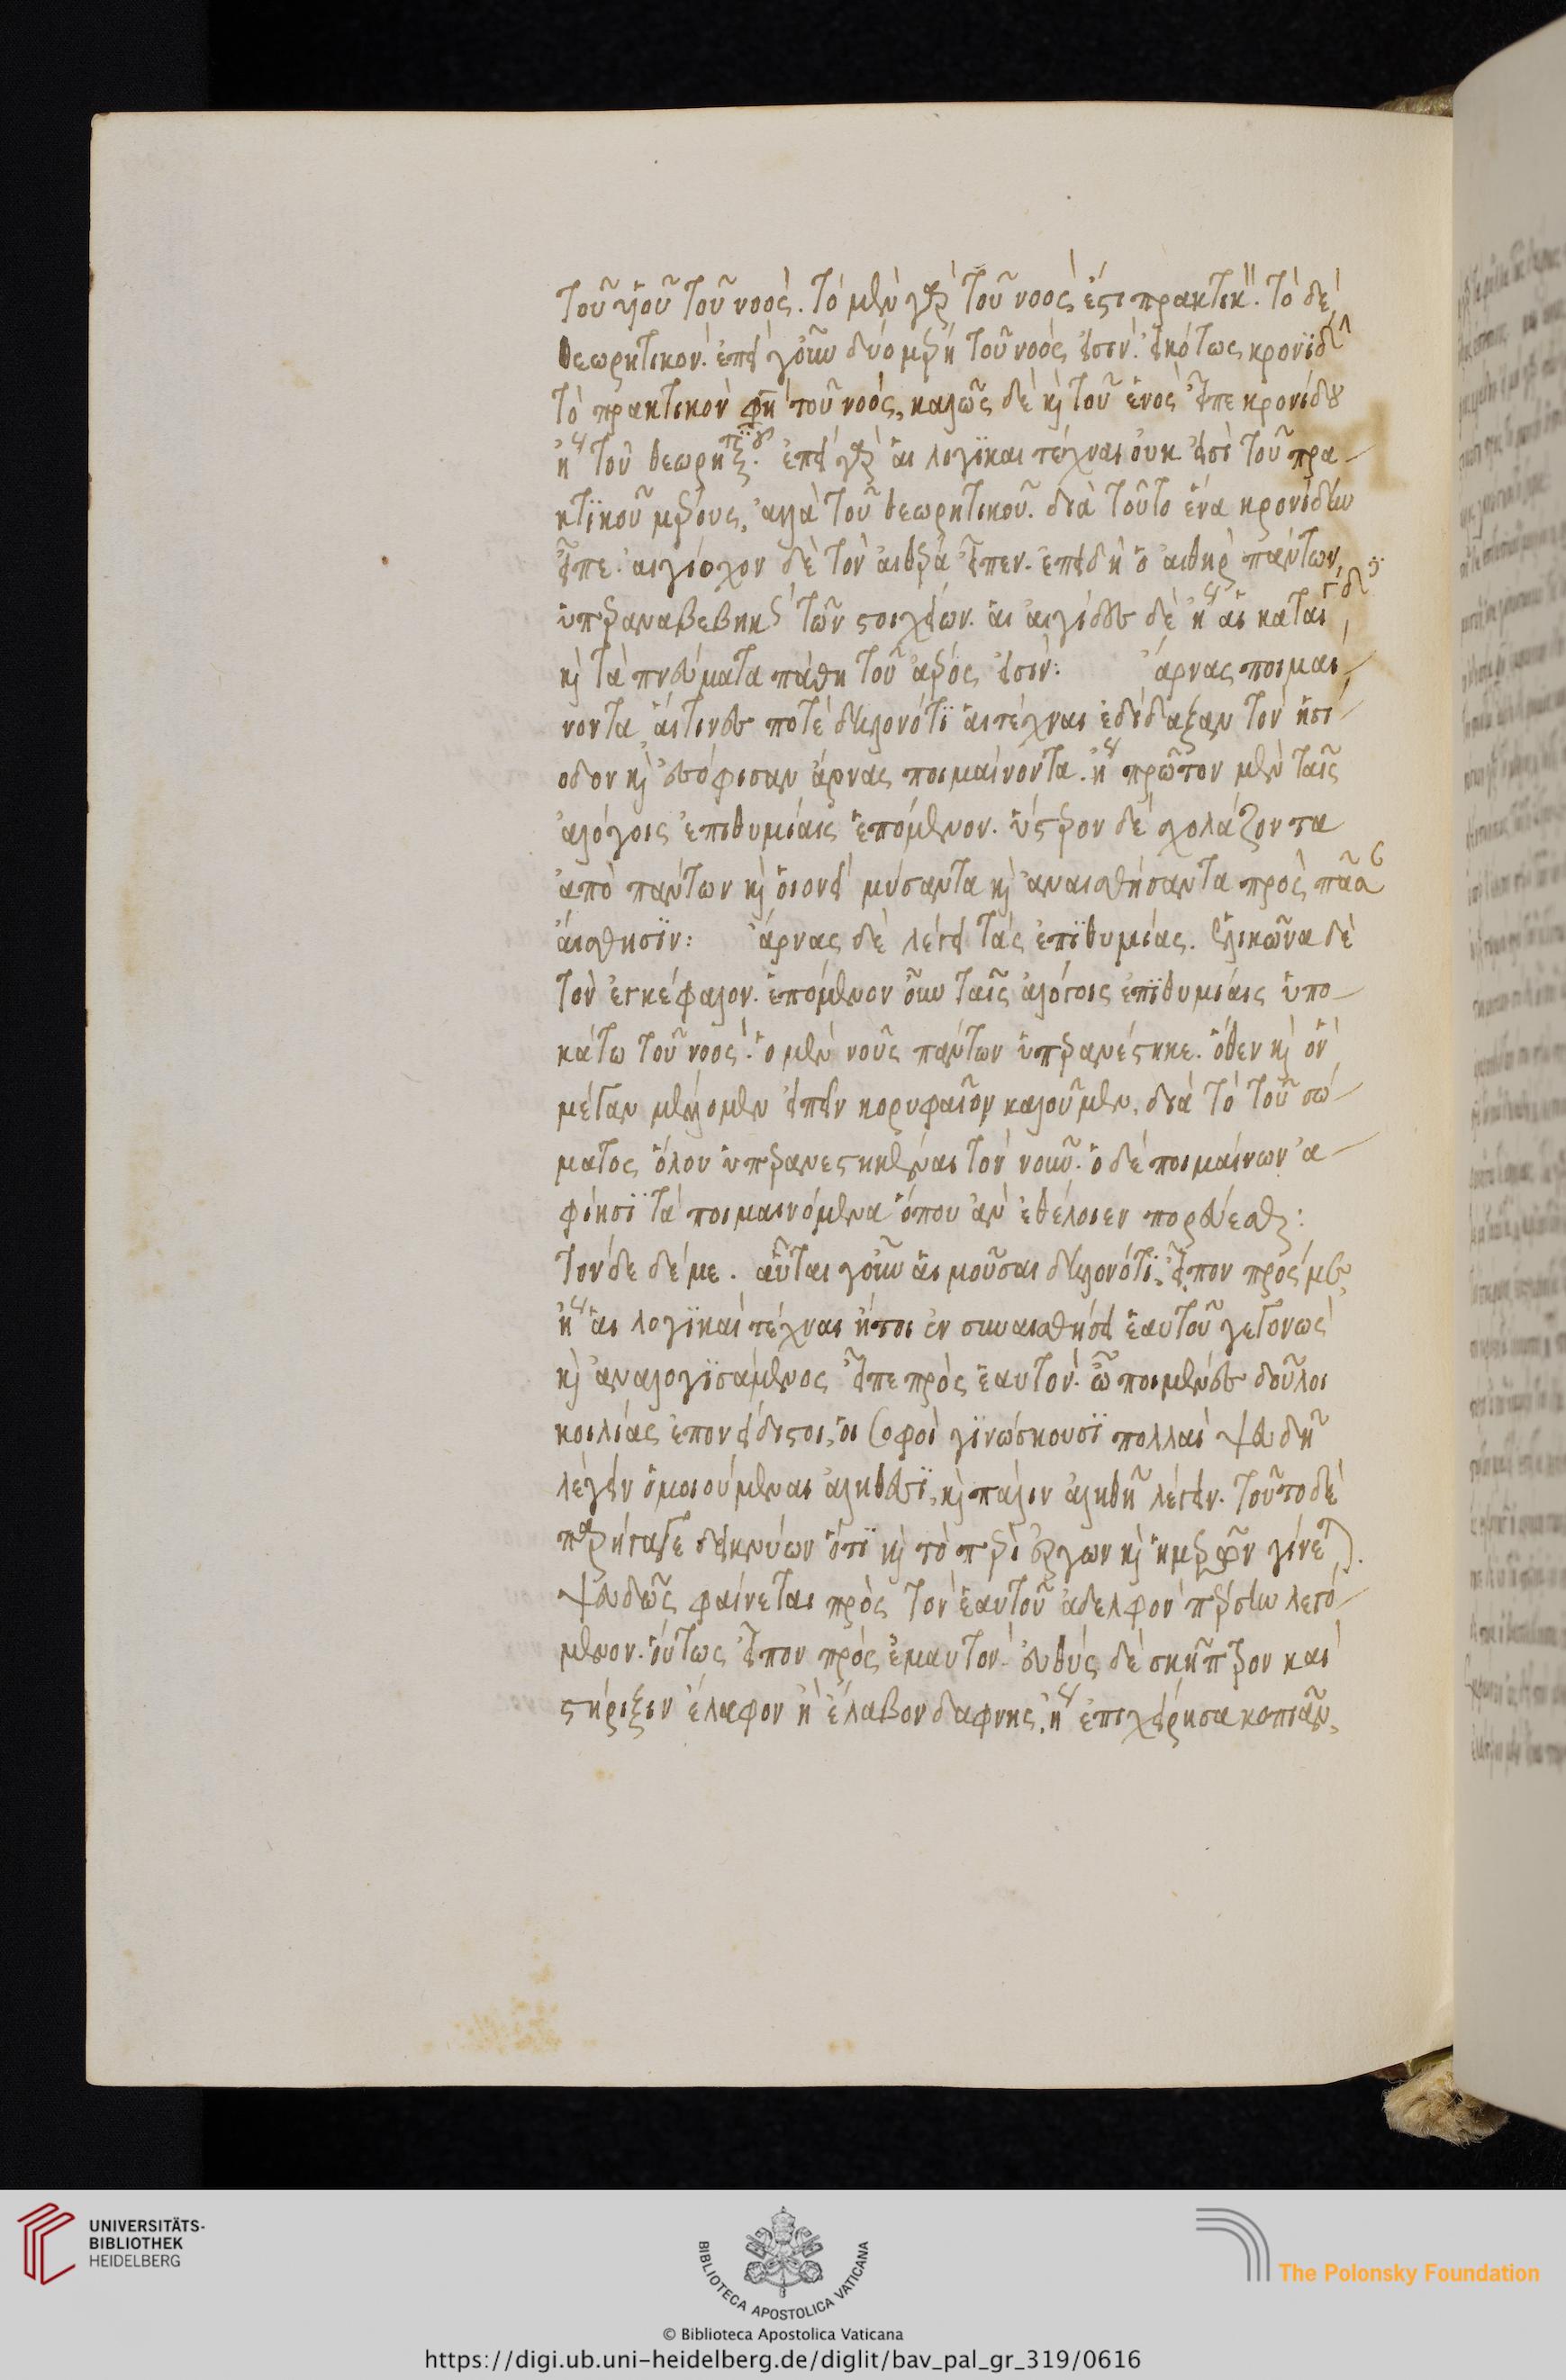 τοῦ υἱοῦ τοῦ νοὸς. τὸ μὲν γὰρ τοῦ νοὸς, ἐστι πρακτικ. τὸ δὲ
θεωρητικὸν. ἐπεὶ γοῦν δύο μέρη τοῦ νοὸς εἰσιν. εἰκότως κρονίδ
τὸ πρακτικὸν φη τοῦ νοὸς, καλῶς δὲ καὶ τοῦ ἑνὸς εἶπε κρονίδου
ἤτοι τοῦ θεωρη μέρους. ἐπεὶ γὰρ αἱ λογϊκαι τέχναι οὐκ εἰσὶ τοῦ πρα
κτϊκοῦ μέρους, ἀλλὰ τοῦ θεωρητικοῦ. διὰ τοῦτο ἕνα κρονίδην
εἶπε. αιγίοχον δὲ τὸν αἰθέρα εἶπεν. ἐπειδὴ ὁ αἰθὴρ πάντων
ὑπεραναβεβηκε τῶν στοιχείων. αἱ αιγίδες δὲ ἤτοι αἱ καταιγίδες
καὶ τὰ πνεύματα πάθη τοῦ ἀέρος εἰσὶν: ἄρνας ποιμαι
νοντα ἅιτινες ποτὲ δηλονότϊ αἱ τέχναι ἐδίδαξαν τὸν ἡσι
οδον καὶ ἐσόφισαν ἄρνας ποιμαίνοντα. ἤτοι πρῶτον μὲν ταῖς
ἀλόγοις ἐπιθυμίαις ἑπόμενον. ὕστερον δὲ σχολάζοντα
ἀπὸ πάντων καὶ οἱονεὶ μύσαντα καὶ ἀναισθήσαντα πρὸς πᾶσαν
αἴσθησϊν: ἄρνας δὲ λέγει τὰς ἐπϊθυμίας. ἑλικῶνα δὲ
τὸν ἐγκέφαλον. ἑπόμενον οὖν ταῖς ἀλόγοις ἐπϊθυμίαις ὑπο
κάτω τοῦ νοὸς. ὁ μὲν νοῦς πάντων ὑπερανέστηκε. ὅθεν καὶ ὃν
μέγαν μέλλομεν εἰπεῖν κορυφαῖον καλοῦμεν, διὰ τὸ τοῦ σώ
ματος ὅλον ὑπερανεστηκέναι τὸν νοῦν. ὁ δὲ ποιμαίνων ἀ
φίησϊ τὰ ποιμαινόμενα ὅπου ἂν ἐθέλοιεν πορεύεσθαι:
τόνδε δέ με. αὗται γοῦν αἱ μοῦσαι δηλονότϊ. εἶπον πρός με
ἤτοι αἱ λογϊκαὶ τέχναι ἤτοι ἐν συναισθήσει ἑαυτοῦ γεγονὼς
καὶ ἀναλογϊσάμενος εἶπε πρὸς ἑαυτὸν. ὦ ποιμένες δοῦλοι
κοιλίας ἐπονείδιστοι, οἱ σοφοὶ γϊνώσκουσϊ πολλαὶ ψευδῆ
λέγειν ὁμοιούμεναι ἀληθέσϊ, καὶ πάλιν ἀληθῆ λέγειν. τοῦτο δὲ
παρήγαγε δεικνύων ὅτϊ καὶ τὸ περὶ ἔργων καὶ ἡμερῶν γίνεται.
ψευδῶς φαίνεται πρὸς τὸν ἑαυτοῦ ἀδελφὸν πέρσην λεγό
μενον. οὕτως εἶπον πρὸς ἐμαυτὸν. εὐθὺς δὲ σκῆπτρον καὶ
στήριξιν ἔλαφον ἢ ἔλαβον δαφνης, ἤτοι ἐπιχείρησα κοπιᾶν,
UNIVERSITÄTS-
BIBLIOTHEK
HEIDELBERG
BIBLIOTECA APOSTOLICA VATICANA
The Polonsky Foundation
© Biblioteca Apostolica Vaticana
https://digi.ub.uni-heidelberg.de/diglit/bav_pal_gr_319/0616